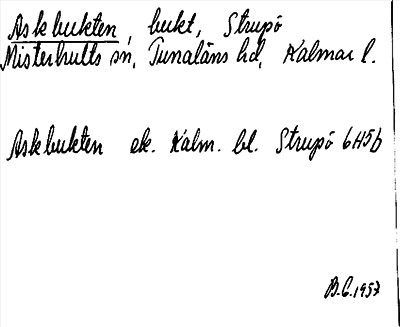 Askbukten, bukt, Strupö
Misterhults sn, Tunaläns hd, Kalmar l.
Askbukten ek. Kalm. bl. Strupö 6H5b
B.G. 1957